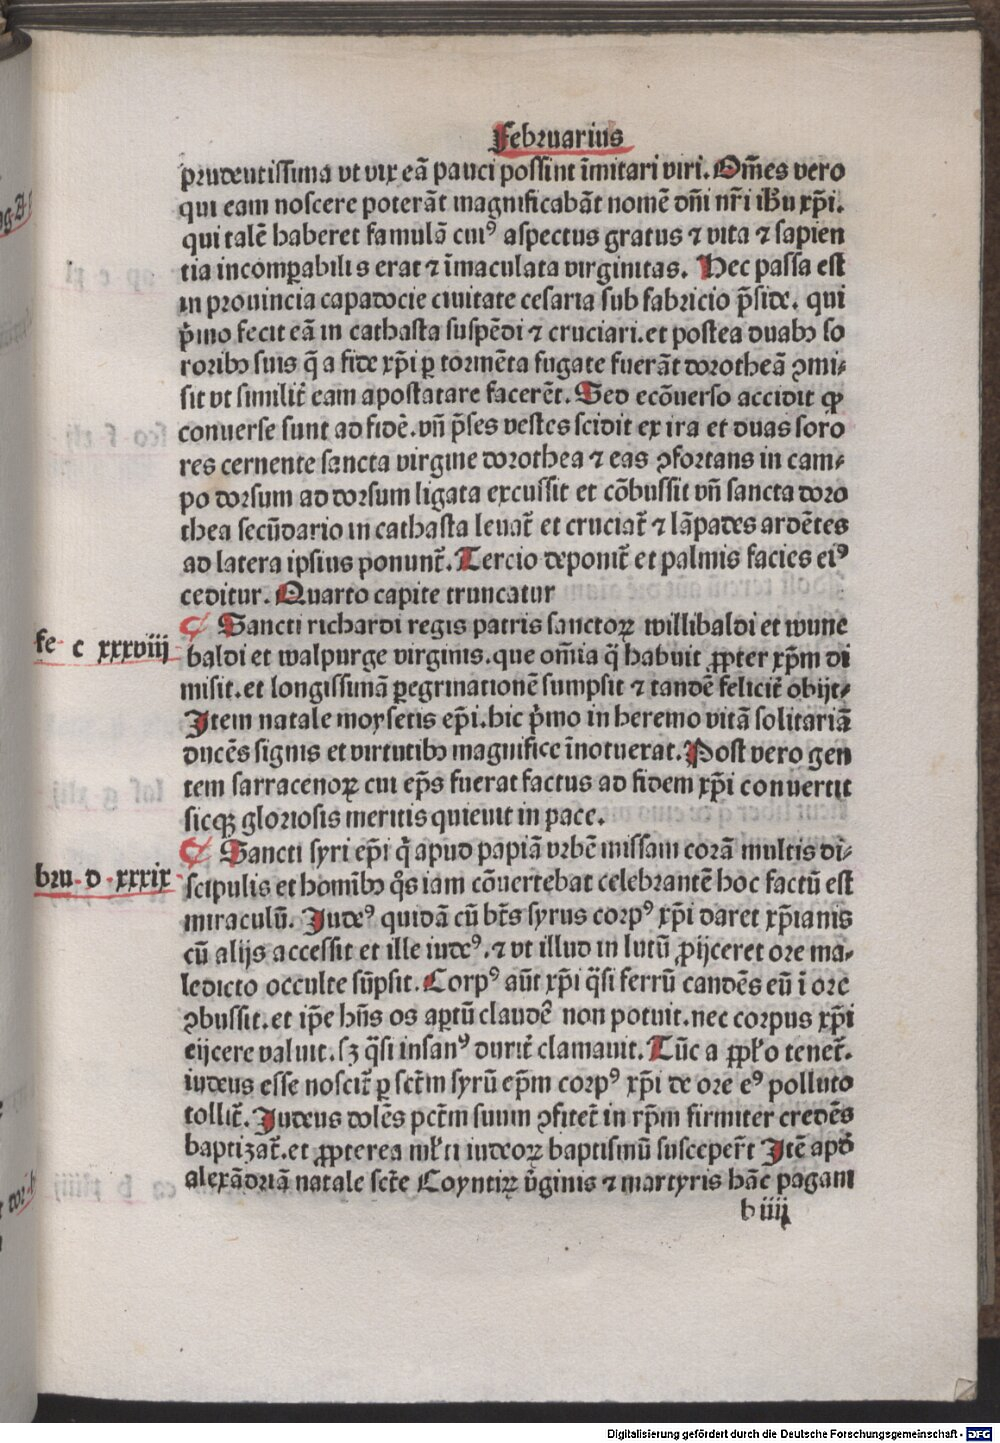 Februarius
prudentissima vt vix eā pauci possint īmitari viri. Om̄es vero
qui eam noscere poterāt magnificabāt nomē dn̄i nr̄i ih̄u xp̄i.
qui talē haberet famulā cui⁹ aspectus gratus ⁊ vita ⁊ sapien
tia incomꝑabilis erat ⁊ īmaculata virginitas. Hec passa est
in prouincia capadocie ciuitate cesaria sub fabricio p̄side. qui
p̄mo fecit eā in cathasta suspēdi ⁊ cruciari. et postea duabꝫ so
roribꝫ suis q̄ a fide xp̄i ꝑ tormēta fugate fuerāt dorotheā ꝯmi⸗
sit vt similit̄ eam apostatare facerēt. Sed ecōuerso accidit ꝙ
conuerse sunt ad fidē. vn̄ p̄ses vestes scidit ex ira et duas soro
res cernente sancta virgine dorothea ⁊ eas ꝯfortans in cam⸗
po dorsum ad dorsum ligata excussit et cōbussit vn̄ sancta doro
thea secūdario in cathasta leuat̄ et cruciat̄ ⁊ lāpades ardētes
ad latera ipsius ponunt̄. Tercio deponit̄ et palmis facies ei⁹
ceditur. Quarto capite truncatur
fe c xxxviij
¶ Sancti richardi regis patris sanctoꝝ willibaldi et wune
baldi et walpurge virginis. que om̄ia q̄ habuit ꝓpter xp̄m di
misit. et longissimā ꝑegrinationē sumpsit ⁊ tandē felicit̄ obijt⸗
Item natale moysetis ep̄i. hic p̄mo in heremo vitā solitariā
ducēs signis et virtutibꝫ magnifice īnotuerat. Post vero gen
tem sarracenoꝝ cui ep̄s fuerat factus ad fidem xp̄i conuertit
sicqꝫ gloriosis meritis quieuit in pace.
bru d xxxix
¶ Sancti syri ep̄i q̄ apud papiā vrbē missam corā multis di⸗
scipulis et homībꝫ q̄s iam cōuertebat celebrantē hoc factū est
miraculū. Iude⁹ quidā cū bt̄s syrus corp⁹ xp̄i daret xp̄ianis
cū alijs accessit et ille iude⁹. ⁊ vt illud in lutū ꝓijceret ore ma⸗
ledicto occulte sūpsit. Corp⁹ aūt xp̄i q̄si ferrū candēs eū ī ore
ꝯbussit. et ip̄e hn̄s os aꝑtū claudē non potuit. nec corpus xp̄i
eijcere valuit. sꝫ q̄si insan⁹ durit̄ clamauit. Tūc a ꝓpło tenet̄.
iudeus esse noscit̄ ꝑ sct̄m syrū ep̄m corp⁹ xp̄i de ore e⁹ polluto
tollit̄. Iudeus dolēs pct̄m suum ꝯfitet̄ in xp̄m firmiter credēs
baptizat̄. et ꝓpterea młti iudeoꝝ baptismū susceper̄t Itē apd̄
alexādriā natale sct̄e Coyntiꝝ v̄ginis ⁊ martyris hāc pagani
b iiij
Digitalisierung gefördert durch die Deutsche Forschungsgemeinschaft - DFG